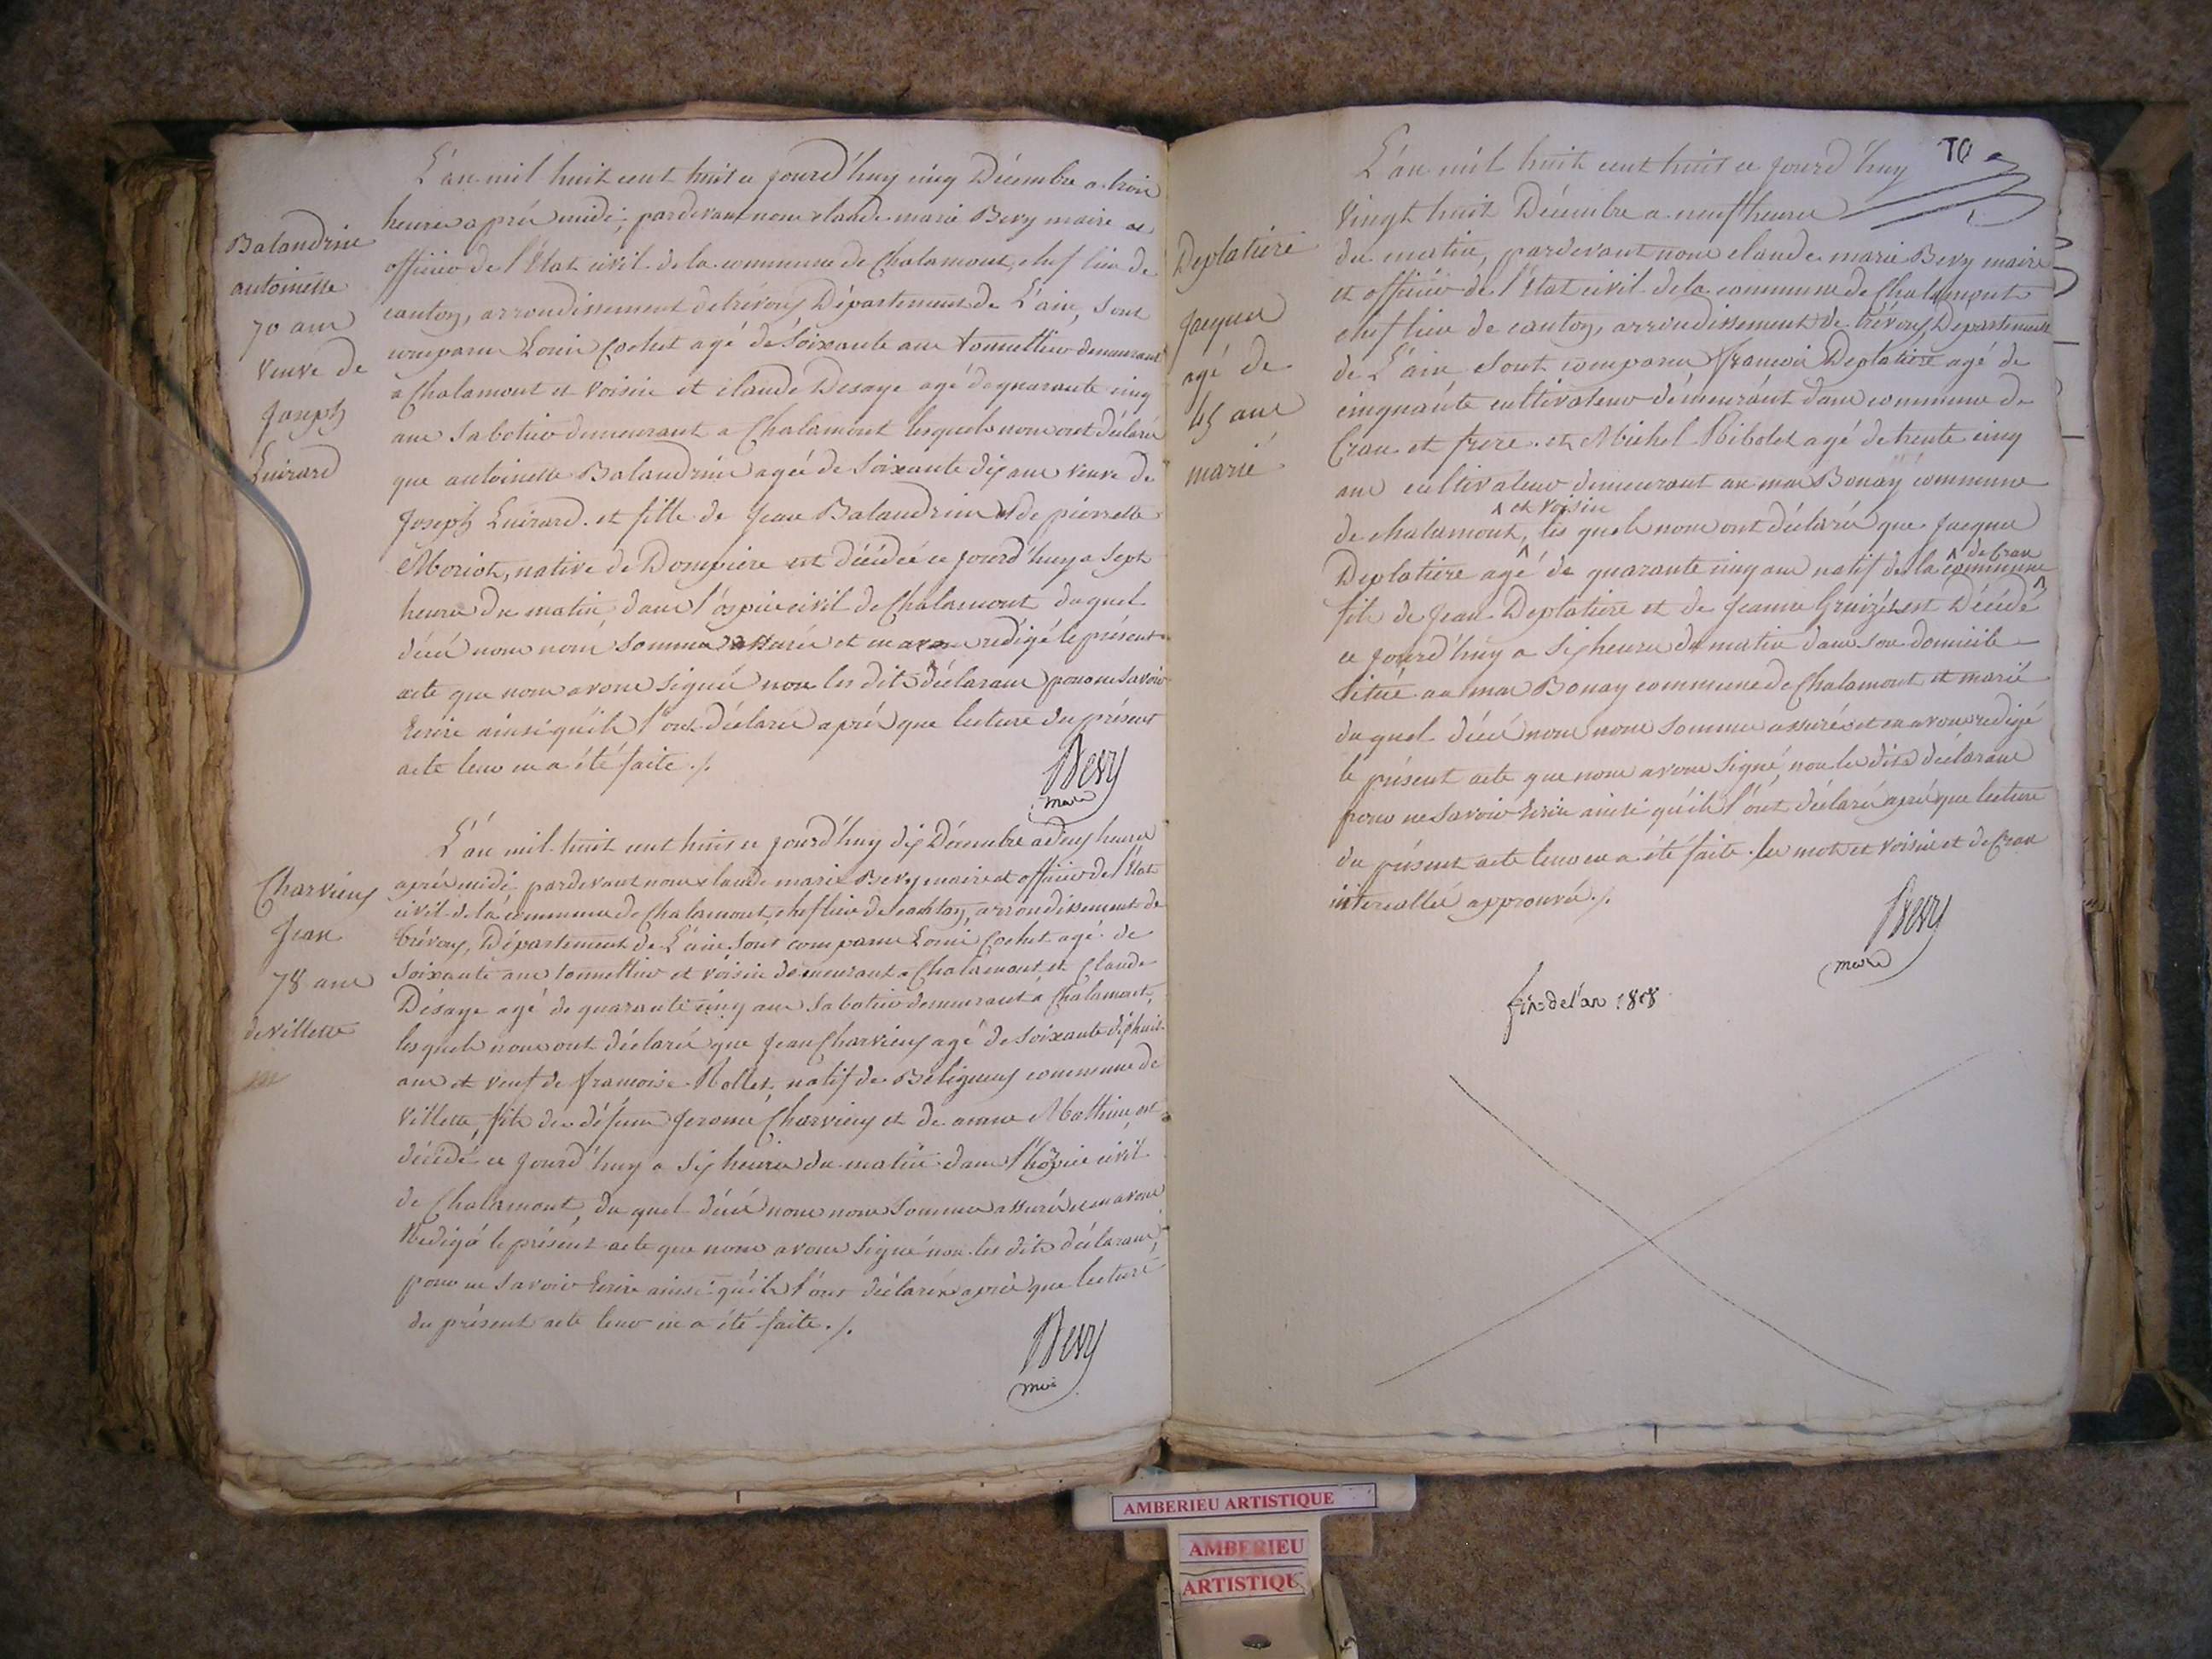 L'an mil huit cent huit ce jourd'huy cinq Décembre a trois
heures aprés midi, pardevant nous claude marie Bevy maire et
officier de l'Etat civil de la commune de Chalamont, chef lieu de
canton, arrondissement de trévoux Département de L'ain, sont
comparu Louis Cochet agé de soixante ans tonnellier demeurant
a Chalamont et voisin et claude Desaye agé de quarante cinq
ans sabotier demeurant a Chalamont lesquels nous ont déclaré
que antoinette Balandrin agée de soixante dix ans veuve de
Joseph Luirard et fille de Jean Balandrin et de pierrette
Moriot, native de Dompière est décédée ce jourd'huy a sept
heures du matin dans l'ospice civil de Chalamont duquel
décé nous nous sommes assurés et en avons redigé le présent
acte que nous avons signé non les dits déclarans pour ne savoir
Ecrire ainsi qu'ils l'ont déclaré aprés que lecture du présent
acte leur en a été faite ./.
Bevy
maire
Balandrin
antoinette
70 ans
veuve de
Joseph
Luirard
L'an mil huit cent huit ce jourd'huy dix Décembre a deux heures
aprés midi pardevant nous claude marie Bevy maire et officier de l'Etat
civil de la commune de Chalamont, chef lieu de canton, arrondissement de
trévoux, Département de L'ain sont comparu Louis Cochet agé de
soixante ans tonnellier et voisin demeurant a Chalamont et Claude
Désaye agé de quarante cinq ans sabotier demeurant a Chalamont,
lesquels nous ont déclaré que Jean Charvieux agé de soixante dix huit
ans et veuf de françoise Rollet, natif de Béligneux commune de
villette, fils de défunt Jerome Charvieux et de anne Mathieu, est
décédé ce jourd'huy a six heures du matin dans l'hospice civil
de Chalamont, du quel décé nous nous sommes assuré et en avons
Redigé le présent acte que nous avons signé non les dits déclarans,
pour ne savoir Ecrire ainsi qu'ils l'ont déclaré aprés que lecture
du présent acte leur en a été faite ./.
Bevy
maire
Charvieux
Jean
78 ans
de villette
TO
L'an mil huit cent huit ce jourd'huy
vingt huit Décembre a neuf heures
du matin, pardevant nous claude marie Bevy maire
et officier de l'Etat civil de la commune de Chalamont
chef lieu de canton, arrondissement de trévoux Département
de L'ain sont comparu françois Deplatiere agé de
cinquante cultivateur démeurant dans commune de
Cran et frere et Michel Ribolet agé de trente cinq
ans cultivateur demeurant au mas Bonay commune
et voisin
de chalamont, les quels nous ont déclaré que Jacque
de Cran
Deplatiere agé de quarante cinq ans natif de la commune
fils de Jean Deplatiere et de Jeanne est Décédé
ce jourd'huy a six heures du matin dans son domicile
situé au mas Bonay commune de Chalamont et marié
du quel décé nous nous sommes assurés et en avons redigé
le présent acte que nous avons signé, non les dits déclarans
pour ne savoir Ecrire ainsi qu'ils l'ont déclaré aprés que lecture
du présent acte leur en a été faite. les mots et voisin et de Cran
intercallés approuvé ./.
Bevy
maire
Deplatiere
Jacques
agé de
45 ans
marié
fin de l'an 1808
AMBERIEU ARTISTIQUE
AMBERIEU
ARTISTIQUE